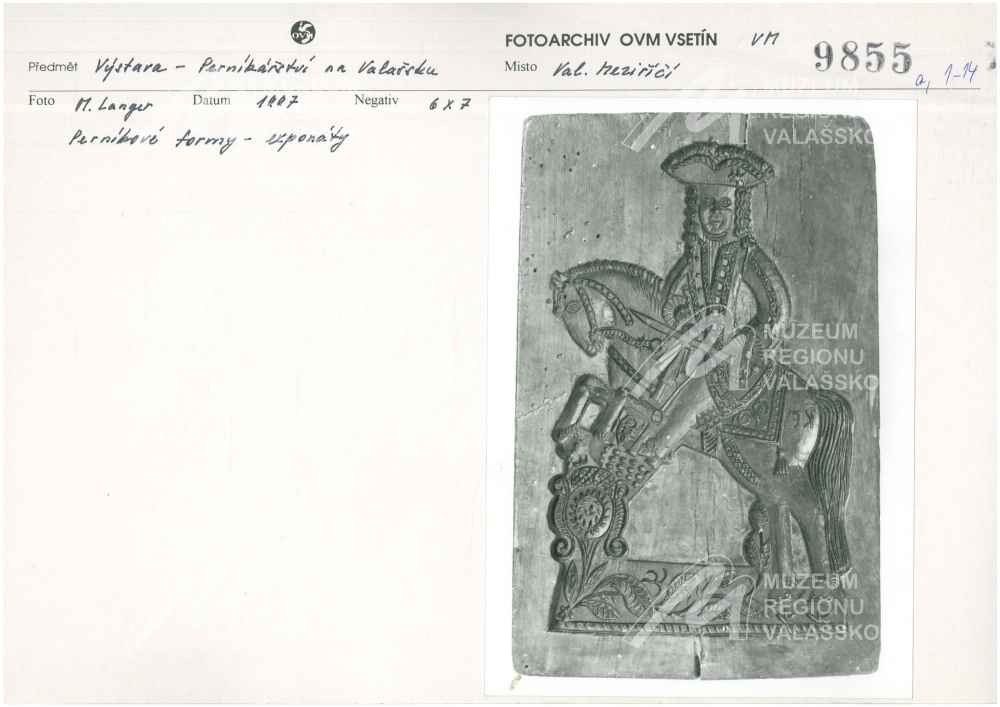 OVM
FOTOARCHIV OVM VSETÍN VM
9855
a, 1-14
Předmět Výstava - Perníkářství na Valašsku
Místo Val. Meziříčí
Foto M. Langer Datum 1997 Negativ 6x7
Perníkové formy - exponáty
MUZEUM
REGIONU
VALAŠSKO
MUZEUM
REGIONU
VALAŠSKO
MUZEUM
REGIONU
VALAŠSKO